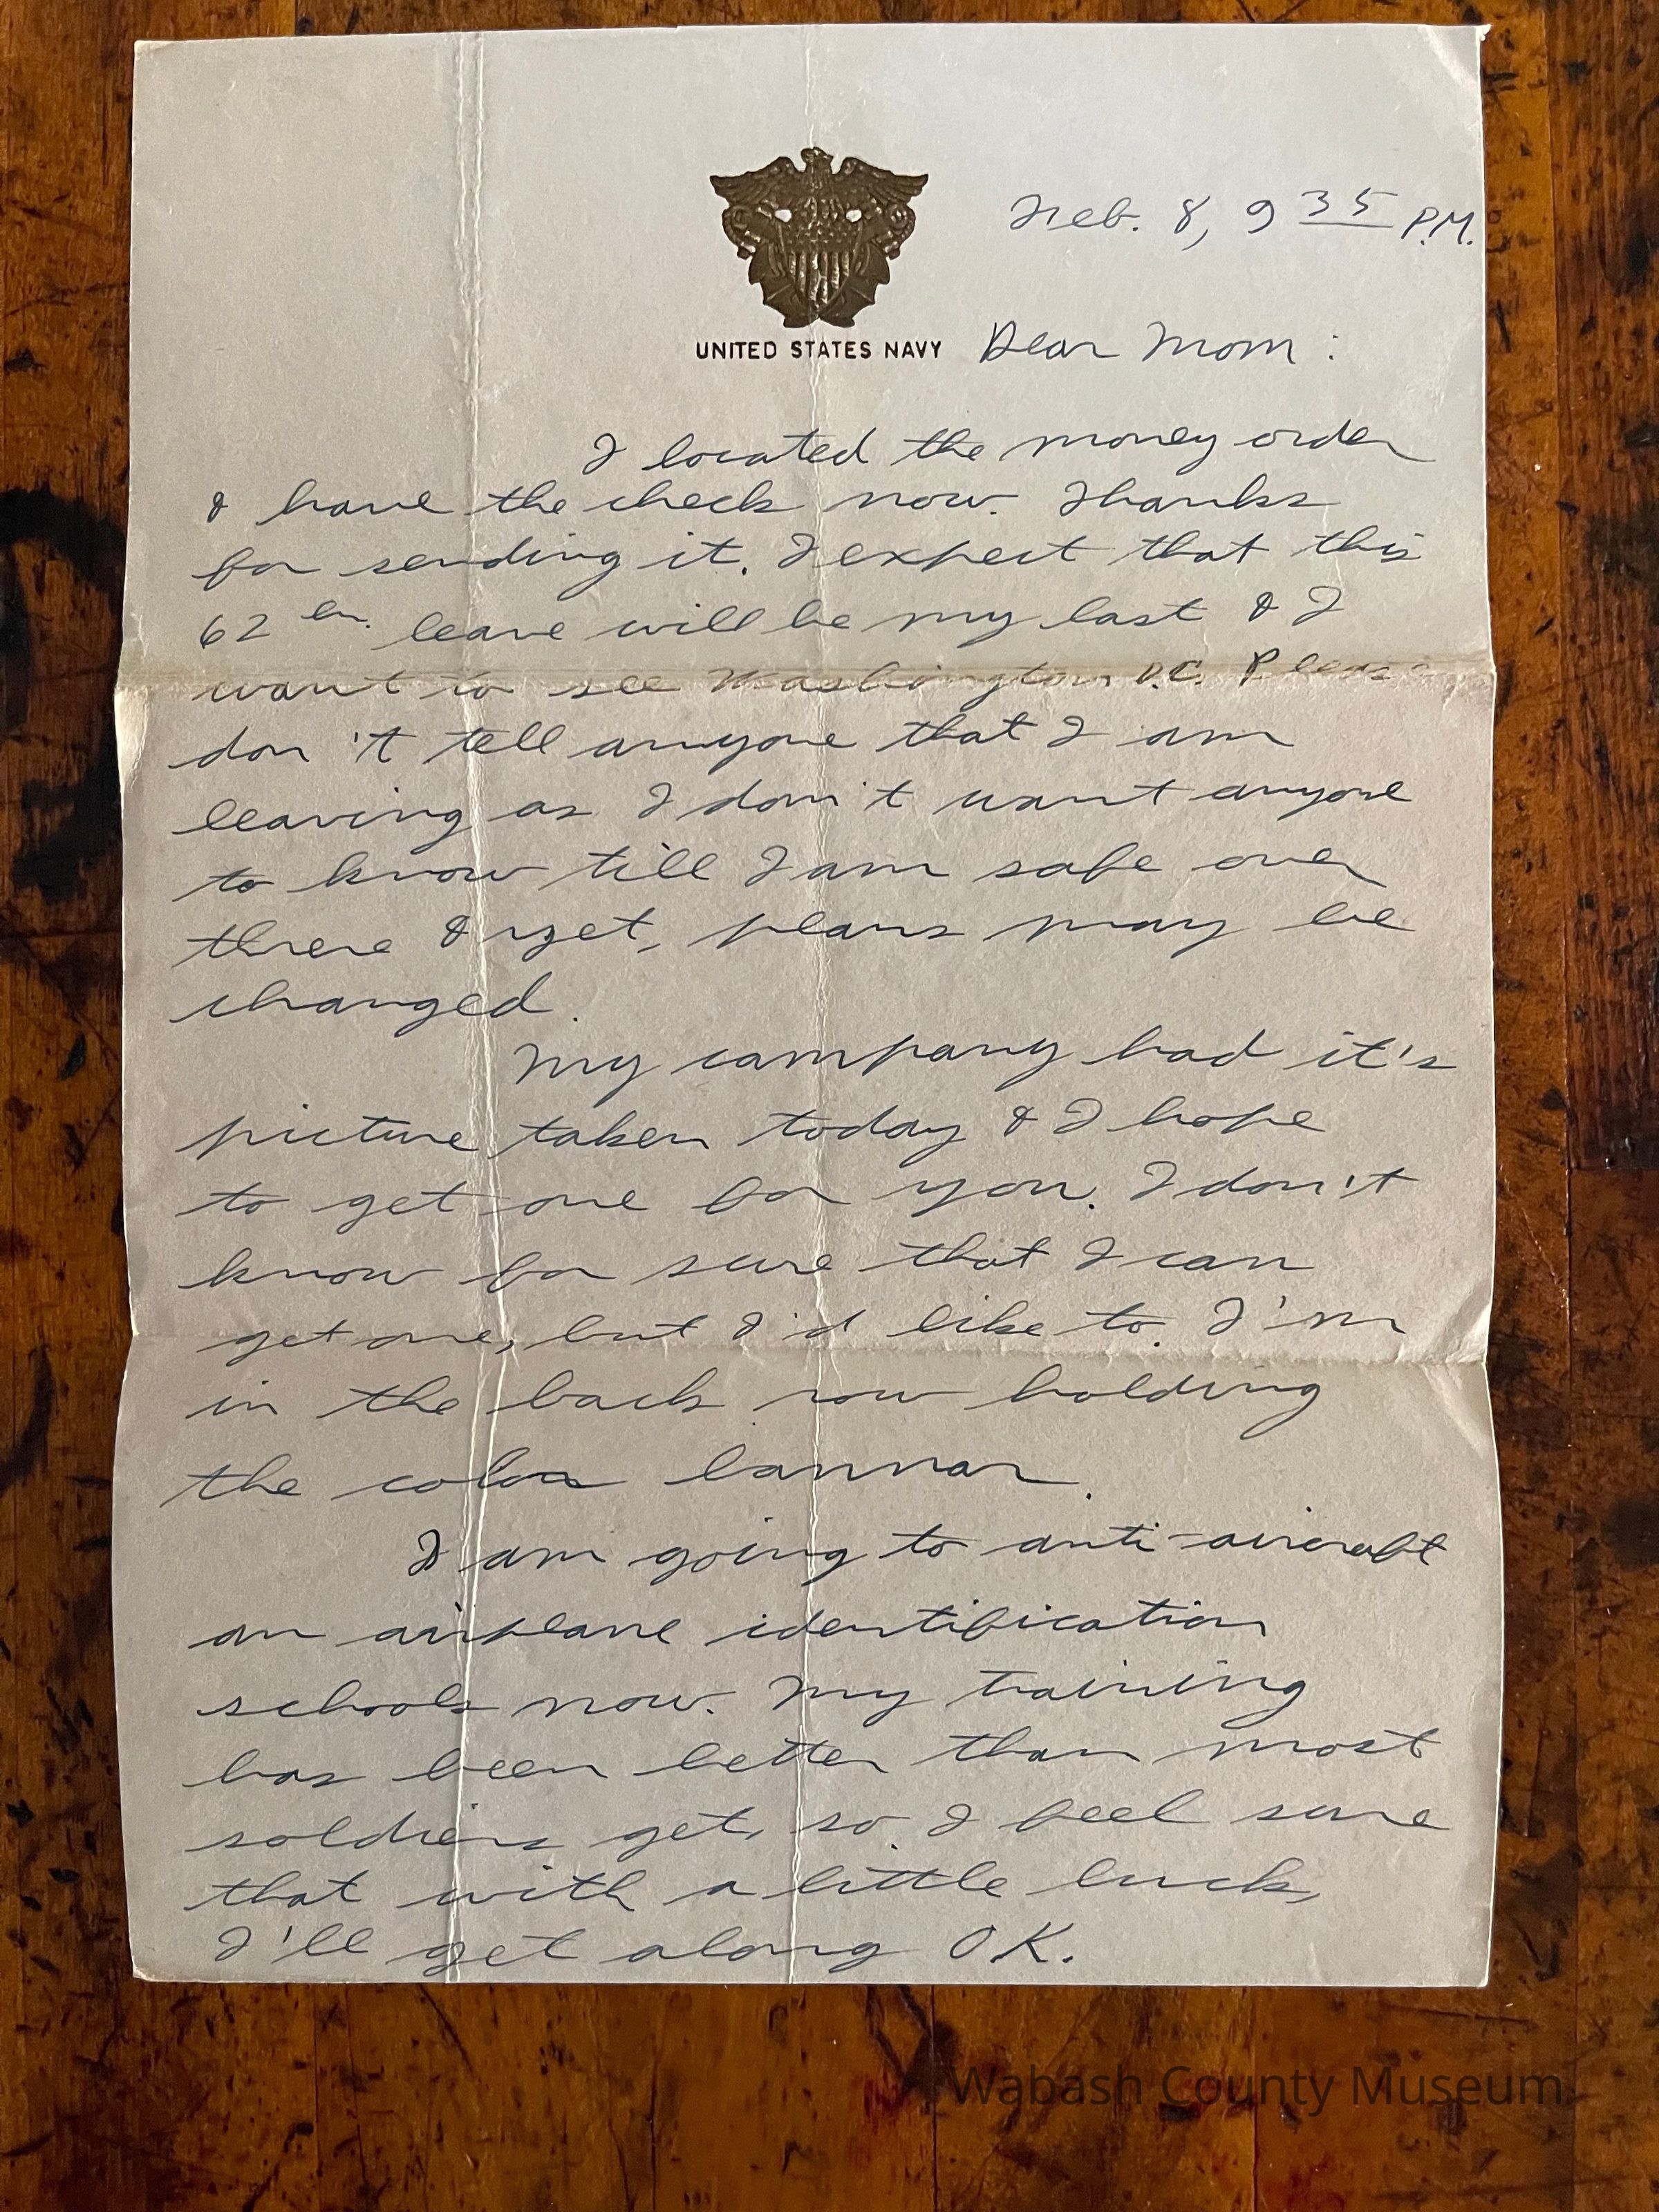 Feb. 8, 9 35 P.M.
UNITED STATES NAVY
Dear Mom :
I located the money order
& have the check now. Thanks
for sending it. I expect that this
62 hr. leave will be my last & I
want to see Washington D.C. Please
don't tell anyone that I am
leaving as I don't want anyone
to know till I am safe over
there & yet, plans may be
changed.
My company had it's
picture taken today & I hope
to get one for you. I don't
know for sure that I can
get one, but I'd like to. I'm
in the back row holding
the color bannar.
I am going to anti-aircraft
an airplane identification
schools now. My training
has been better than most
soldiers get, so I feel sure
that with a little luck,
I'll get along OK.
Wabash County Museum